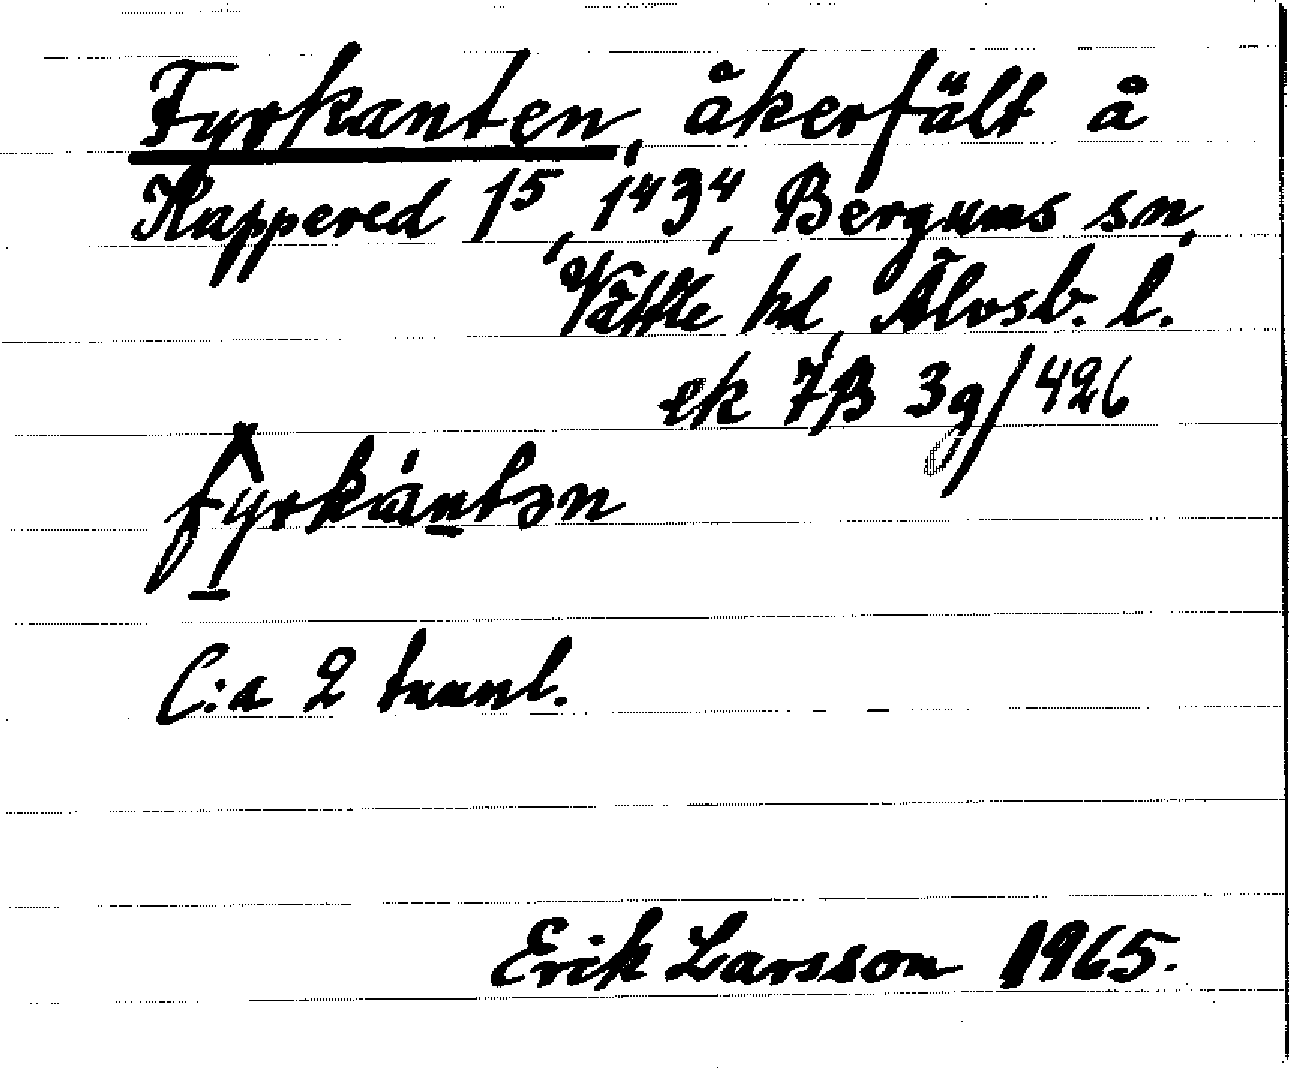 Fyrkanten, åkerfält å
Kuppered 1⁵, 1⁴3⁴, Bergums sn,
Vättle hd, Älvsb. l.
ek 7B 3g/426
fyrkántən
C:a 2 tunnl.
Erik Larsson 1965.